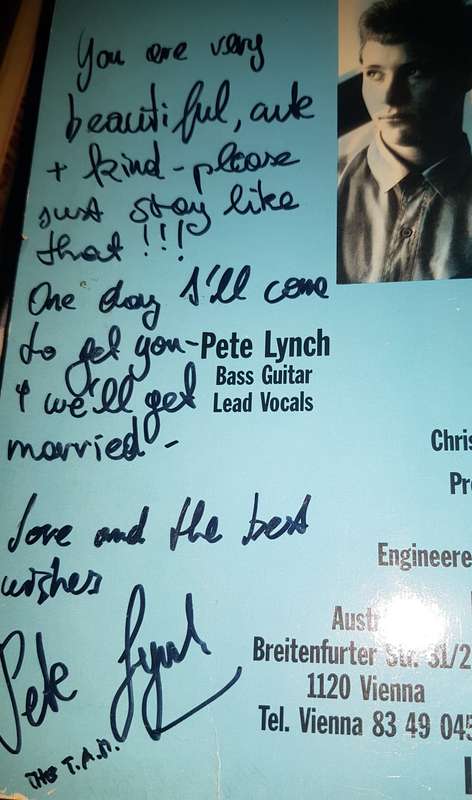 You are very
beautiful, cute
+ kind - please
just stay like
that!!!
One day I'll come
to get you -
+ we'll get
married -
love and the best
wishes
Pete Lynch
THE T.A.M.
Pete Lynch
Bass Guitar
Lead Vocals
Chris
Pr
Engineere
Aust
Breitenfurter Str. 31/2
1120 Vienna
Tel. Vienna 83 49 045